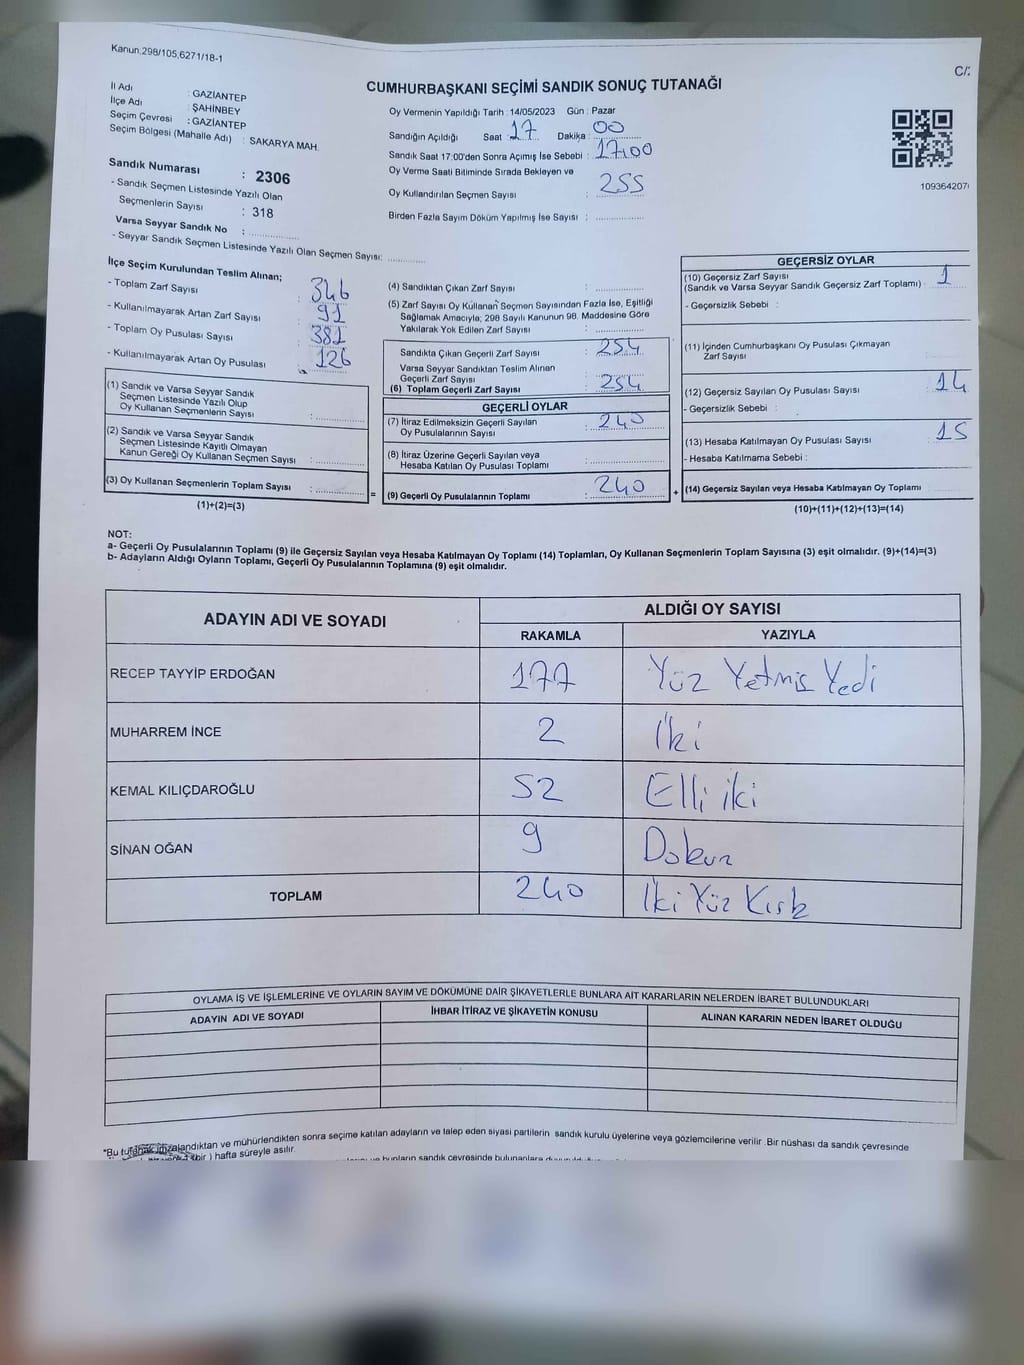 Kanun,298/105,6271/18-1
C/:
CUMHURBAŞKANI SEÇİMİ SANDIK SONUÇ TUTANAĞI
İl Adı : GAZİANTEP
İlçe Adı : ŞAHİNBEY
Seçim Çevresi : GAZİANTEP
Seçim Bölgesi (Mahalle Adı) : SAKARYA MAH.
Sandık Numarası : 2306
- Sandık Seçmen Listesinde Yazılı Olan
Seçmenlerin Sayısı : 318
Varsa Seyyar Sandık No :
- Seyyar Sandık Seçmen Listesinde Yazılı Olan Seçmen Sayısı:
Oy Vermenin Yapıldığı Tarih : 14/05/2023 Gün : Pazar
Sandığın Açıldığı Saat : 17 Dakika : 00
Sandık Saat 17:00'den Sonra Açımış İse Sebebi : 17:00
Oy Verme Saati Bitiminde Sırada Bekleyen ve
Oy Kullandırılan Seçmen Sayısı : 255
Birden Fazla Sayım Döküm Yapılmış İse Sayısı :
109364207
İlçe Seçim Kurulundan Teslim Alınan;
- Toplam Zarf Sayısı : 346
- Kullanılmayarak Artan Zarf Sayısı : 91
- Toplam Oy Pusulası Sayısı : 381
- Kullanılmayarak Artan Oy Pusulası : 126
(1) Sandık ve Varsa Seyyar Sandık
Seçmen Listesinde Yazılı Olup
Oy Kullanan Seçmenlerin Sayısı :
(2) Sandık ve Varsa Seyyar Sandık
Seçmen Listesinde Kayıtlı Olmayan
Kanun Gereği Oy Kullanan Seçmen Sayısı :
(3) Oy Kullanan Seçmenlerin Toplam Sayısı :
(1)+(2)=(3)
=
(4) Sandıktan Çıkan Zarf Sayısı :
(5) Zarf Sayısı Oy Kullanan Seçmen Sayısından Fazla İse, Eşitliği
Sağlamak Amacıyla; 298 Sayılı Kanunun 98. Maddesine Göre
Yakılarak Yok Edilen Zarf Sayısı :
Sandıkta Çıkan Geçerli Zarf Sayısı : 254
Varsa Seyyar Sandıktan Teslim Alınan
Geçerli Zarf Sayısı :
(6) Toplam Geçerli Zarf Sayısı : 254
GEÇERLİ OYLAR
(7) İtiraz Edilmeksizin Geçerli Sayılan
Oy Pusulalarının Sayısı : 240
(8) İtiraz Üzerine Geçerli Sayılan veya
Hesaba Katılan Oy Pusulası Toplamı :
(9) Geçerli Oy Pusulalarının Toplamı : 240
+
GEÇERSİZ OYLAR
(10) Geçersiz Zarf Sayısı
(Sandık ve Varsa Seyyar Sandık Geçersiz Zarf Toplamı) : 1
- Geçersizlik Sebebi :
(11) İçinden Cumhurbaşkanı Oy Pusulası Çıkmayan
Zarf Sayısı :
(12) Geçersiz Sayılan Oy Pusulası Sayısı : 14
- Geçersizlik Sebebi :
(13) Hesaba Katılmayan Oy Pusulası Sayısı : 15
- Hesaba Katılmama Sebebi :
(14) Geçersiz Sayılan veya Hesaba Katılmayan Oy Toplamı
(10)+(11)+(12)+(13)=(14)
NOT:
a- Geçerli Oy Pusulalarının Toplamı (9) ile Geçersiz Sayılan veya Hesaba Katılmayan Oy Toplamı (14) Toplamları, Oy Kullanan Seçmenlerin Toplam Sayısına (3) eşit olmalıdır. (9)+(14)=(3)
b- Adayların Aldığı Oyların Toplamı, Geçerli Oy Pusulalarının Toplamına (9) eşit olmalıdır.
ADAYIN ADI VE SOYADI ALDIĞI OY SAYISI
RAKAMLA YAZIYLA
RECEP TAYYİP ERDOĞAN 177 Yüz Yetmiş Yedi
MUHARREM İNCE 2 İki
KEMAL KILIÇDAROĞLU 52 Elli iki
SİNAN OĞAN 9 Dokuz
TOPLAM 240 İki Yüz Kırk
OYLAMA İŞ VE İŞLEMLERİNE VE OYLARIN SAYIM VE DÖKÜMÜNE DAİR ŞİKAYETLERLE BUNLARA AİT KARARLARIN NELERDEN İBARET BULUNDUKLARI
ADAYIN ADI VE SOYADI İHBAR İTİRAZ VE ŞİKAYETİN KONUSU ALINAN KARARIN NEDEN İBARET OLDUĞU
*Bu tutanak imzalandıktan ve mühürlendikten sonra seçime katılan adayların ve talep eden siyasi partilerin sandık kurulu üyelerine veya gözlemcilerine verilir. Bir nüshası da sandık çevresinde
(bir) hafta süreyle asılır.